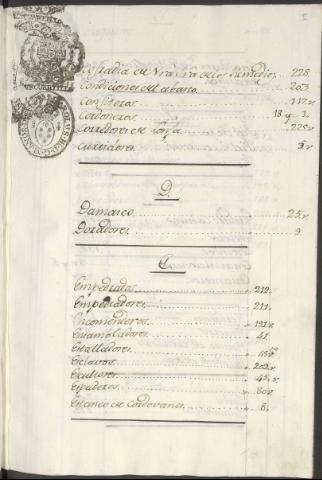 Cofradia de Nra Sra de los Remedios 228
Condiciones del abasto 203
Confiteros 112v
Cordoneros 18 y 3
Corredores de lonja 225v
Curtidores
D.
Damasco 25v
Doradores 9
E
Empedrados 212
Empedradores 211
Encomenderos 191v
Ensambladores 41
Entalladores
Esclavos 202v
Escultores
Espaderos 60v
Estanco de Cordovanes 6